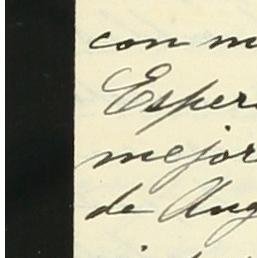 con m
Esper
mejor
de Aug